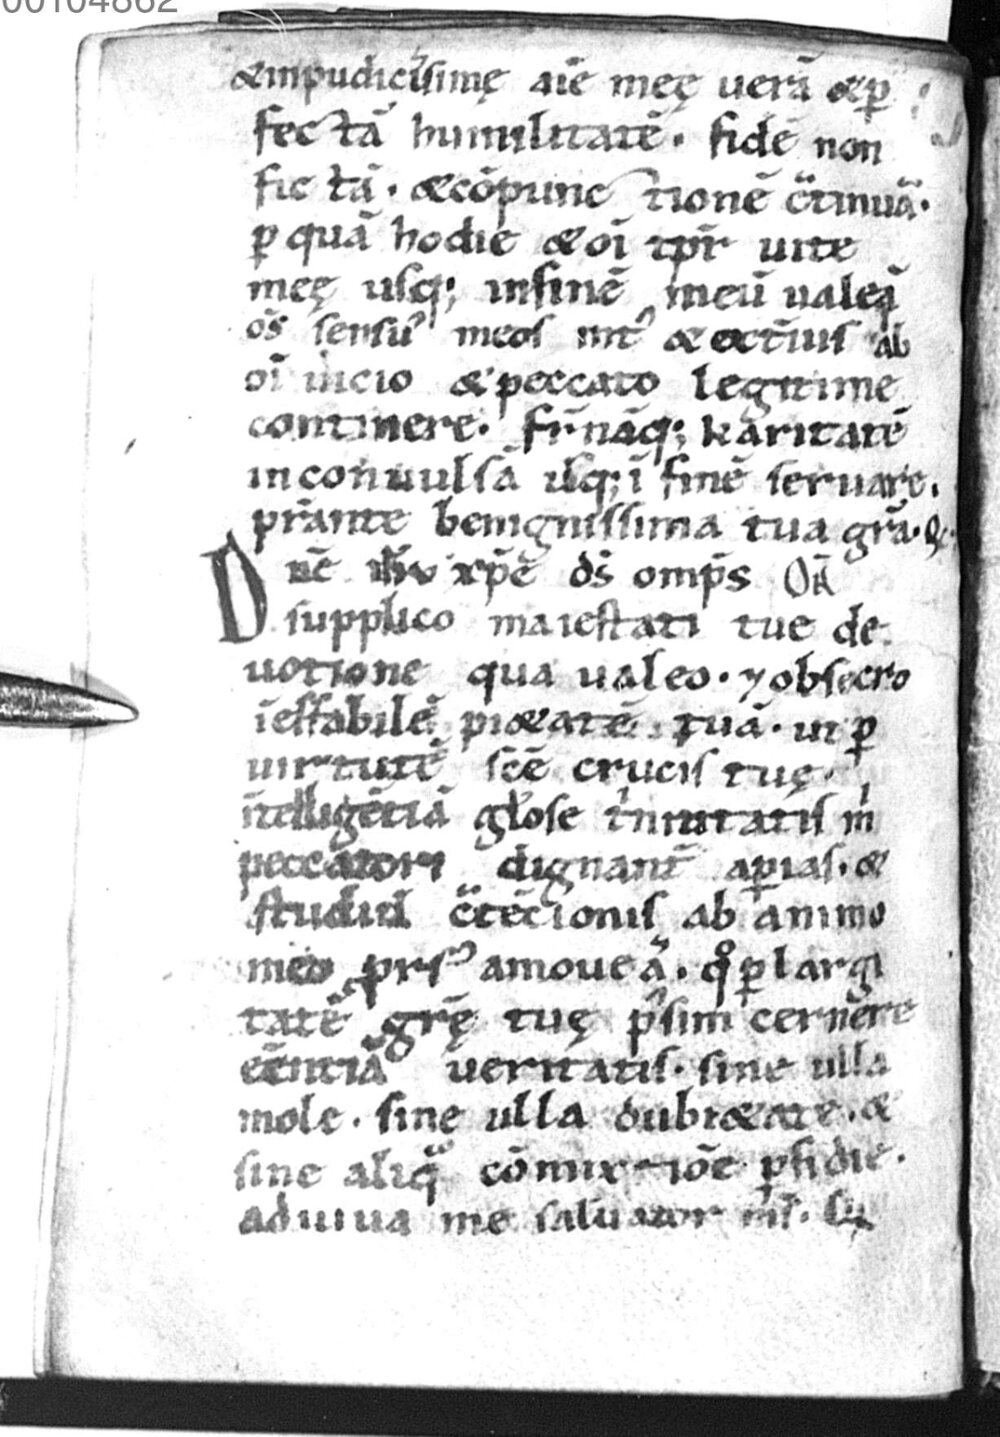 00104862
&inpudicissimę aīe meę uerā &ꝑ
fectā humilitatē. fidē non
fictā. &cōpunctionē c̄tinuā.
ꝑ quā hodie & oī tp̄r uite
meę usq; infinē meū ualeā
os̄ sensus meos int̓ & exteri᷒ ab
oī uicio & peccato legitime
continere. fr̄nāq; karitatē
inconuulsā usq; ī finē seruare.
p̄stante benignissima tua gr̄a. Q
Dn̄e ih̄u xp̄e ds̄ omp̄s OR̄
supplico maiestati tue de
uotione qua ualeo. ⁊obsecro
īeffabilē pi&atē tuā. ut ꝑ
uirtutē sc̄e crucis tuę.
īntelligētiā gl̄ose trinitatis m̄
peccatori dignant̄ aꝑias. &
studiū c̄tētionis ab animo
meo prs᷒ amoueā. qd̄ ꝑ largi
tatē gr̄ę tuę possim cernere
eēntiā ueritatis. sine ulla
mole. sine ulla dubi&ate. &
sine aliqᵃ cōmixtiōe ꝑfidie.
adiuua me saluator m̄s. Q